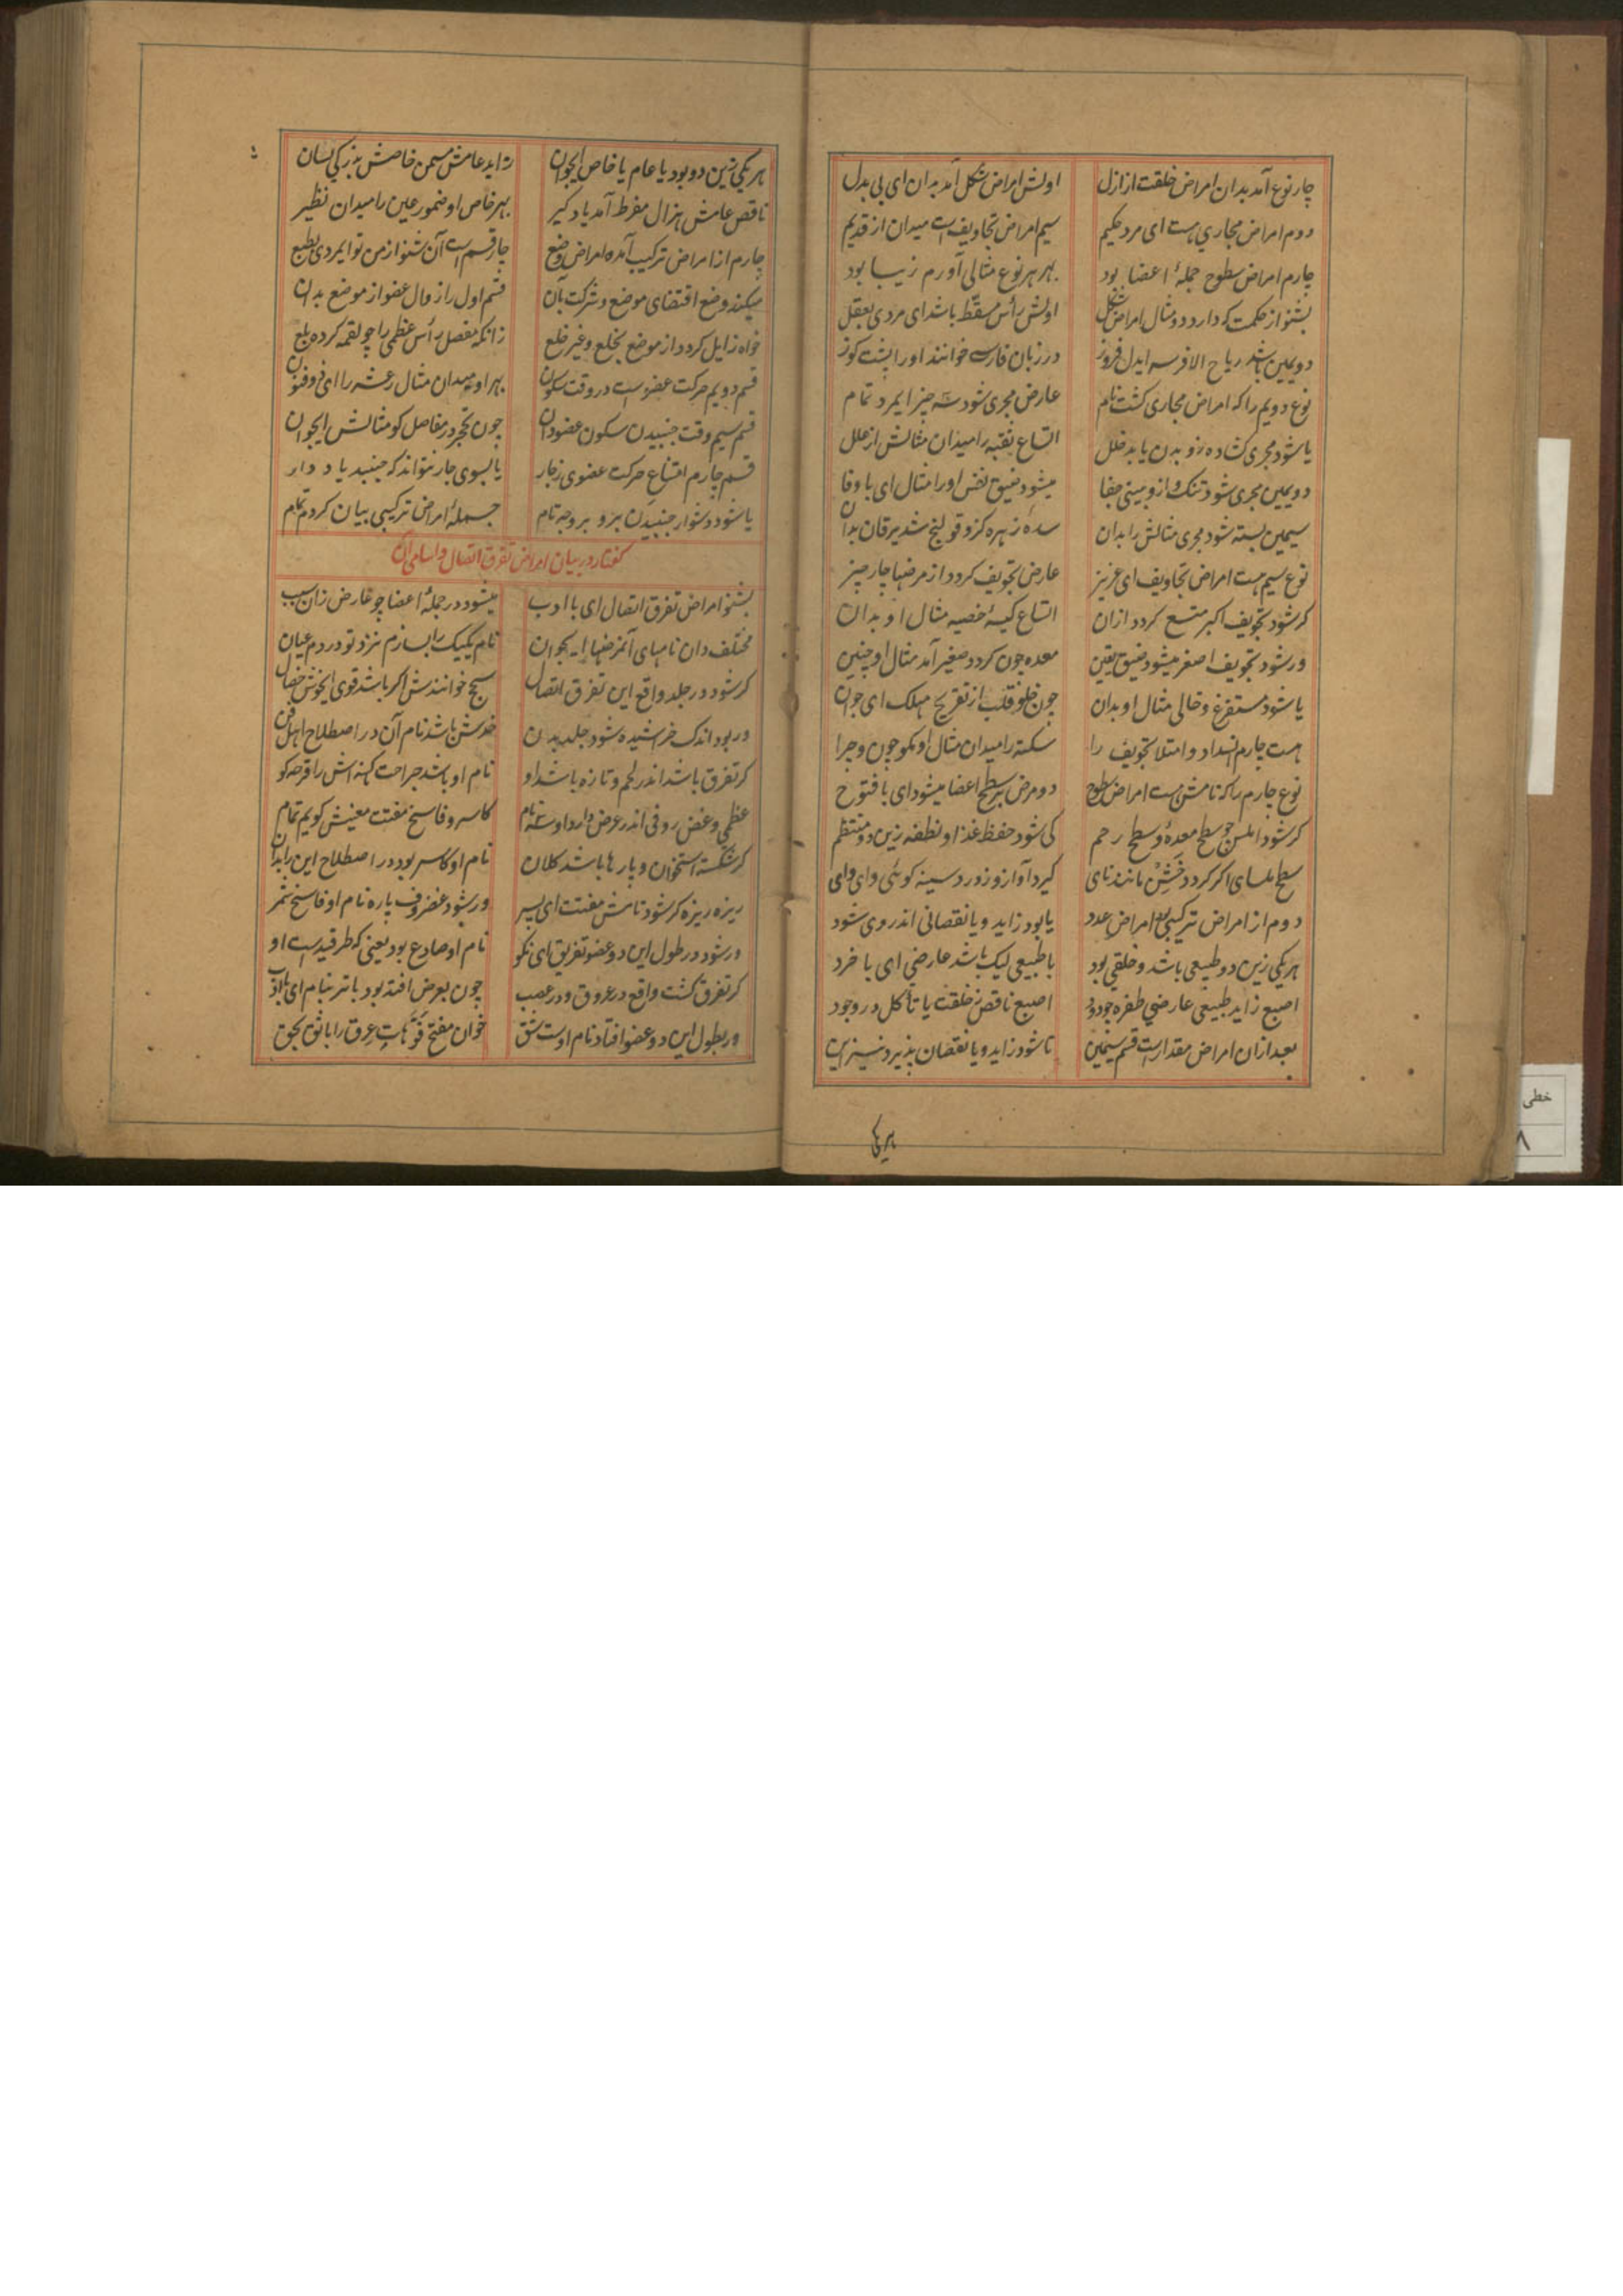 چار نوع آمد بدان امراض خلقت از ازل اولش امراض شکل آمد بدان ای بی بدل
دوم امراض مجاری هست ای مرد حکیم سیم امراض تجاویف است میدان از قدیم
چارم امراض سطوح جملهٔ اعضا بود بهر هر نوع مثالی آورم زیبا بود
بشنو از حکمت که دارد دو مثال امراض شکل اولش رأس مسقّط باشد ای مردی بعقل
دویمین باشد ریاح الافرسه ایدل فروز در زبان فارسی خوانند او را پشت کوز
نوع دویم را که امراض مجاری کشت نام عارض مجری شود سه چیز ایمرد تمام
یا شود مجری کشاده زو بدن یابد خلل اتساع ثقبه را میدان مثالش از علل
دویمین مجری شود تنک و ازو بینی جفا میشود ضیق نفس او را مثال ای با وفا
سیمین بسته شود مجری مثالش را بدان سدهٔ زهره کزو قولنج شد یرقان بدان
نوع سیم هست امراض تجاویف ای عزیز عارض تجویف کردد از مرضها چار چیز
کر شود تجویف اکبر متسع کردد ازان اتساع کیسهٔ خصیه مثال او بدان
ور شود تجویف اصغر میشود ضیق یقین معده چون کردد صغیر آمد مثال او چنین
یا شود مستفرغ و خالی مثال او بدان چون خلو قلب از تفریح مهلک ای جوان
هست چارم انسداد و امتلا تجویف را سکته را میدان مثال او نکو چون و چرا
نوع چارم را که نامش هست امراض سطوح دو مرض بر سطح اعضا میشود ای با فتوح
کر شود املس چو سطح معده و سطح رحم کی شود حفظ غذا و نطفه زین دو منتظم
سطح ملسای اکر کردد خشن مانند نای کیرد آواز و زور د سینه کوئی وای وای
دوم از امراض ترکیبی امراض عدد یا بود زاید و یا نقصانی اندر وی شود
هر یکی زین دو طبیعی باشد و خلقی بود با طبیعی لیک باشد عارضی ای با خرد
اصبع زاید طبیعی عارضی ظفره چو دود اصبع ناقص ز خلقت یا تأکل در وجود
بعد ازان امراض مقدار است قسم سیمین تا شود زاید و یا نقصان پذیرد نیز این
هر یکی
هر یکی زین دو بود یا عام یا خاص ایجوان زاید عامش سمن خاصش بزرکی لسان
ناقص عامش هزال مفرط آمد یاد کیر بهر خاص او ضمور عین را میدان نظیر
چارم از امراض ترکیب آمده امراض وضع چار قسم است آن شنو از من تو ایمردی بطبع
میکند وضع اقتضای موضع و شرکت بآن قسم اول را زوال عضو از موضع بدان
خواه زایل کردد از موضع بخلع و غیر خلع زانکه مفصل رأس عظمی را چو لقمه کرده بلع
قسم دویم حرکت عضو است در وقت سکون بهر او میدان مثال رعشه را ای ذو فنون
قسم سیم وقت جنبیدن سکون عضو دان چون تحجر در مفاصل کو مثالش ایجوان
قسم چارم امتناع حرکت عضوی ز جار یا بسوی جار نتواند که جنبد یاد دار
یا شود دشوار جنبیدن برو بر وجه تام جملهٔ امراض ترکیبی بیان کردم تمام
کفتار در بیان امراض تفرق اتصال و اسامی آن
بشنو امراض تفرق اتصال ای با ادب میشود در جملهٔ اعضا چو عارض زان سبب
مختلف دان نامهای آنمرضها ایجوان نام یکیک را بسازم نزد تو در دم عیان
کر شود در جلد واقع این تفرق اتصال سحج خوانندش اکر باشد قوی ایخوش خصال
ور بود اندک خراشیده شود جلد بدن خدشش باشد نام آن در اصطلاح اهل فن
کر تفرق باشد اندر لحم و تازه باشد او نام او باشد جراحت کهنه اش را قرحه کو
عظمی و غضروفی اندر عرض دارد او سه نام کاسر و فاسخ مفتت معنیش کویم تمام
کر شکسته استخوان و پارها باشد کلان نام او کاسر بود در اصطلاح این را بدان
ریزه ریزه کر شود نامش مفتت ای پسر ور شود غضروف پاره نام او فاسخ شمر
ور شود در طول این دو عضو تفریق ای نکو نام او صادع بود یعنی که طرقیدست او
کر تفرق کشت واقع در عروق و در عصب چون بعرض افتد بود باتر بنام ای با ادب
ور بطول این دو عضو افتاد نام اوست شق خوان مفتح فوهات عرق را با ثوق بحق
خطی
۸